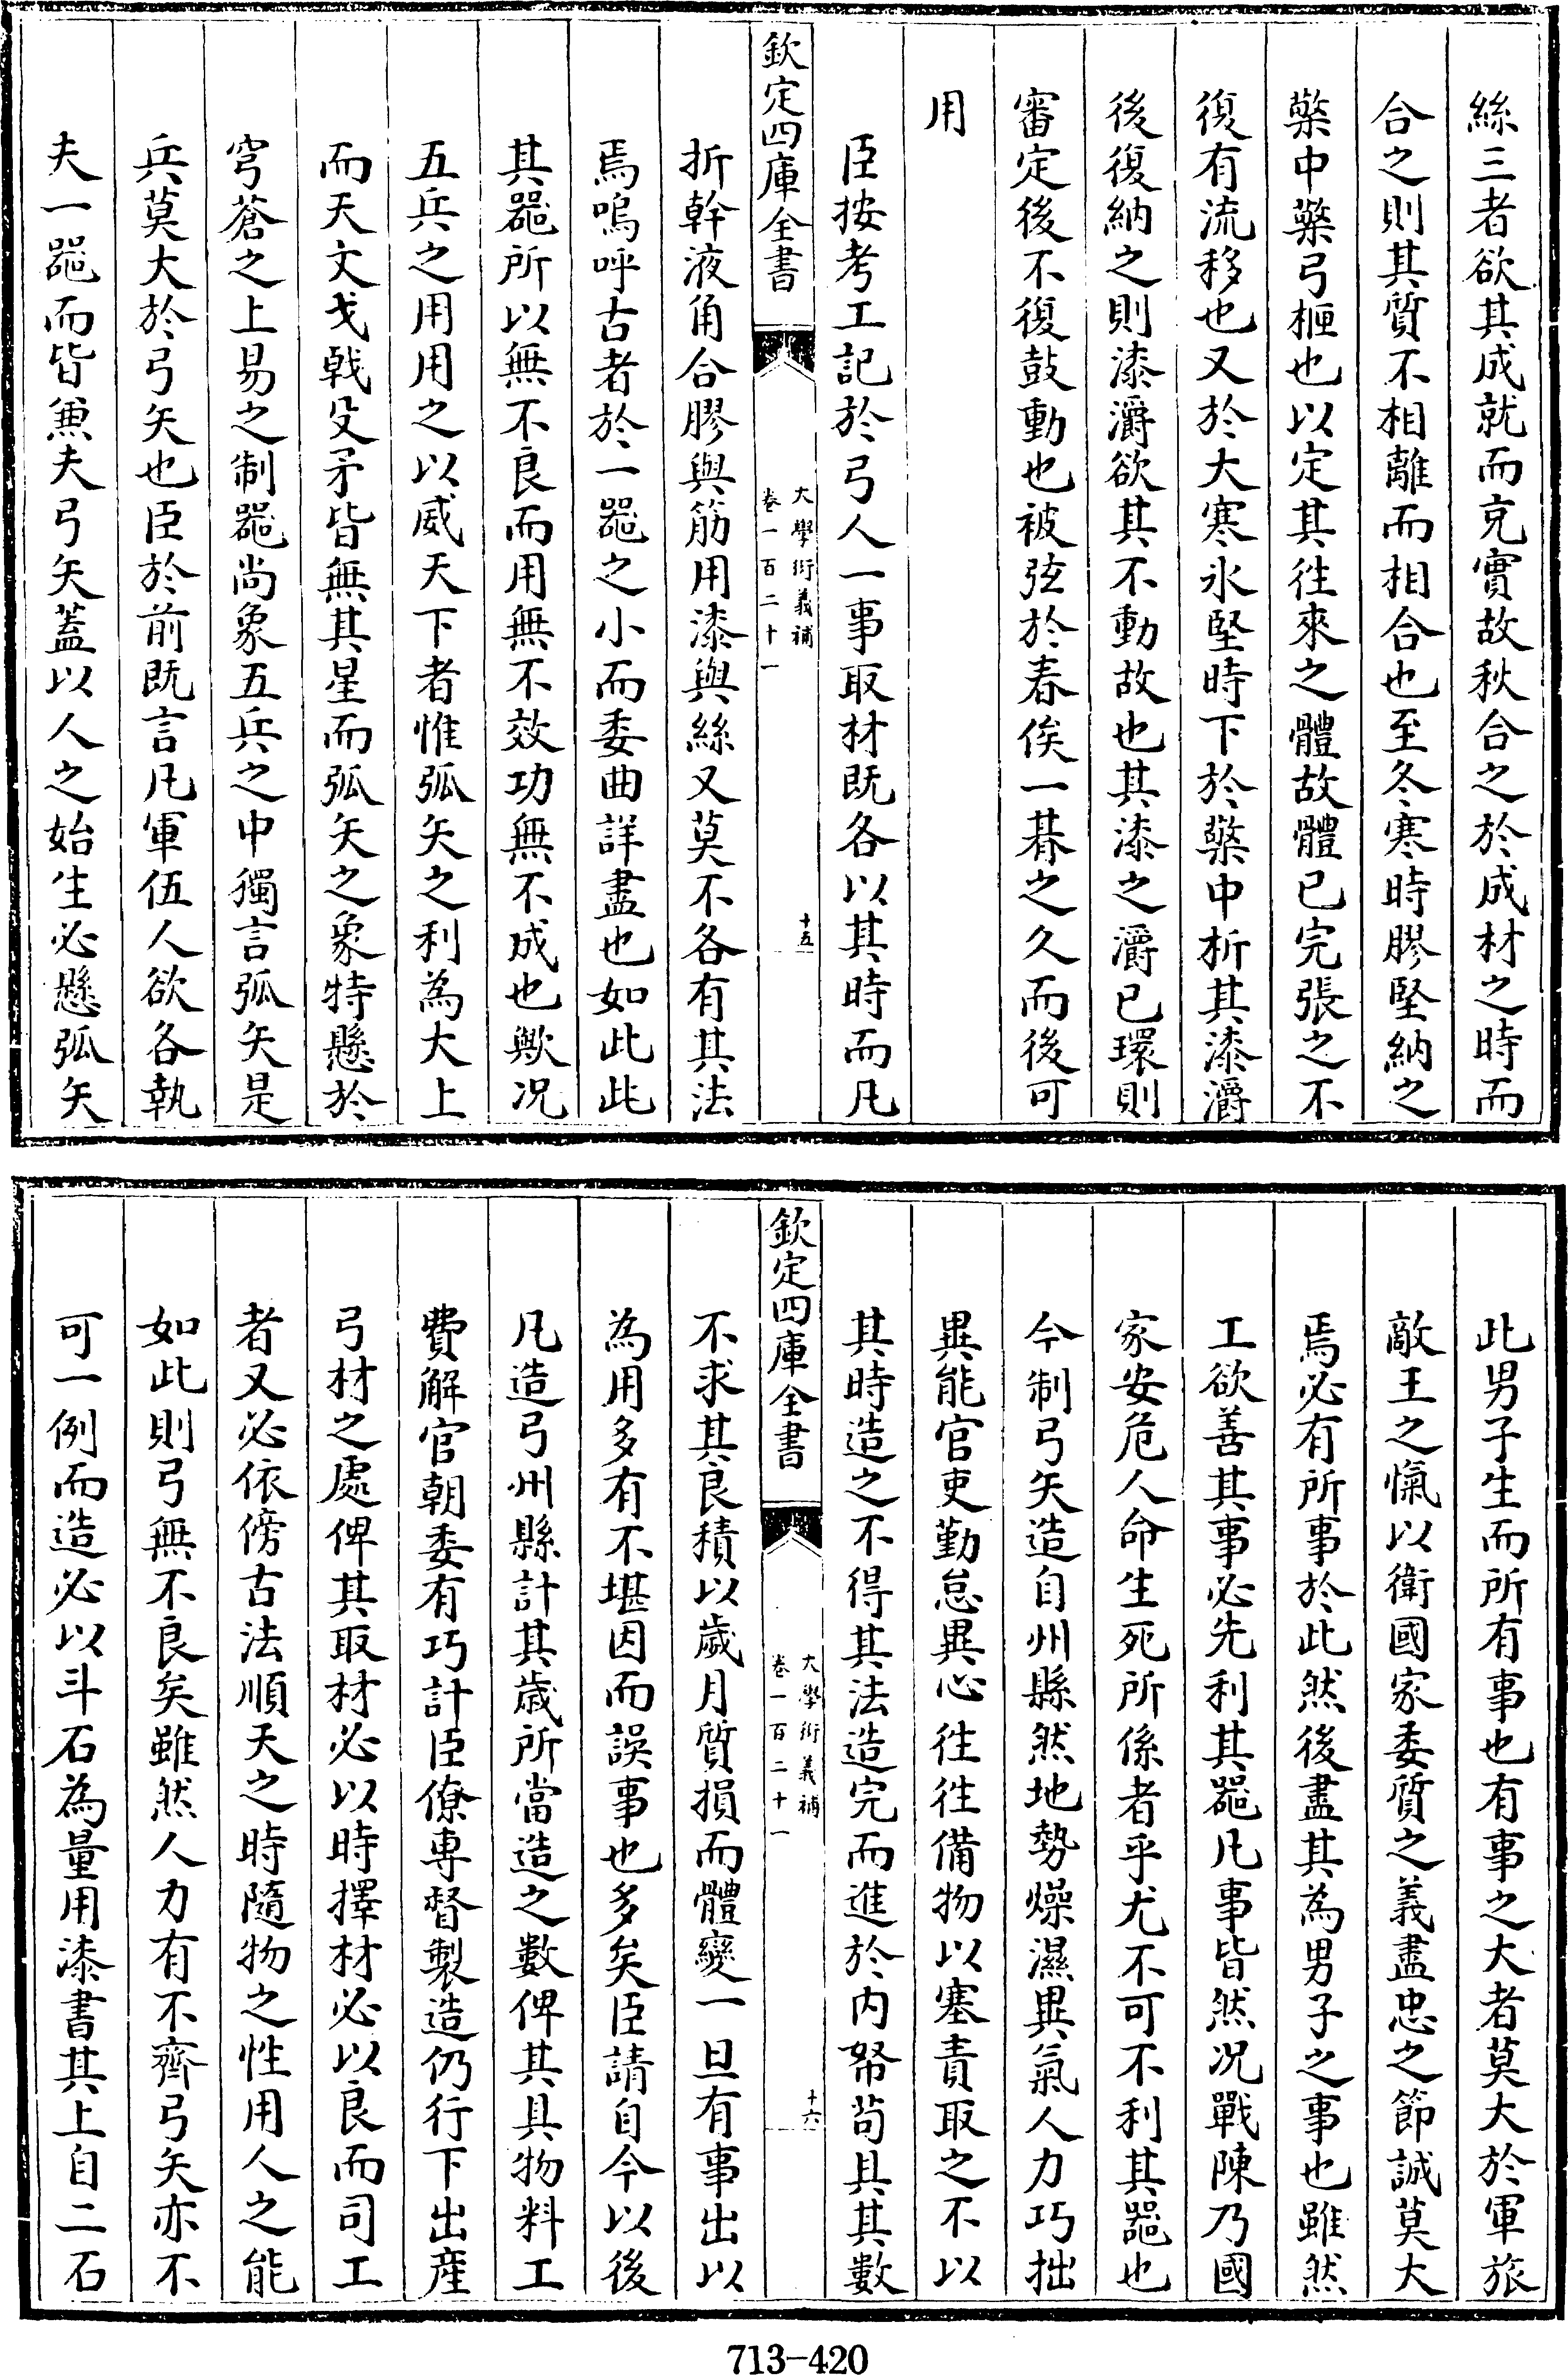 絲三者欲其成就而克實故秋合之於成材之時而
合之則其質不相離而相合也至冬寒時膠堅納之
檠中檠弓柙也以定其徃來之體故體已完張之不
復有流移也又於大寒氷堅時下於檠中析其漆灂
後復納之則漆灂欲其不動故也其漆之灂已環則
審定後不復鼓動也被弦於春俟一朞之久而後可
用
臣按考工記於弓人一事取材既各以其時而凡
欽定四庫全書
大學衍義補
卷一百二十一
十五
折幹液角合膠與筋用漆與絲又莫不各有其法
焉嗚呼古者於一器之小而委曲詳盡也如此此
其器所以無不良而用無不效功無不成也歟况
五兵之用用之以威天下者惟弧矢之利為大上
而天文戈戟殳矛皆無其星而弧矢之象特懸於
穹蒼之上易之制器尚象五兵之中獨言弧矢是
兵莫大於弓矢也臣於前既言凡軍伍人欲各執
夫一器而皆兼夫弓矢蓋以人之始生必懸弧矢
此男子生而所有事也有事之大者莫大於軍旅
敵王之愾以衛國家委質之義盡忠之節誠莫大
焉必有所事於此然後盡其為男子之事也雖然
工欲善其事必先利其器凡事皆然况戰陳乃國
家安危人命生死所係者乎尤不可不利其器也
今制弓矢造自州縣然地勢燥濕異氣人力巧拙
異能官吏勤怠異心徃徃備物以塞責取之不以
其時造之不得其法造完而進於内帑茍具其數
欽定四庫全書
大學衍義補
卷一百二十一
十六
不求其良積以歲月質損而體變一旦有事出以
為用多有不堪因而誤事也多矣臣請自今以後
凡造弓州縣計其歲所當造之數俾其具物料工
費解官朝委有巧計臣僚専督製造仍行下出產
弓材之處俾其取材必以時擇材必以良而司工
者又必依傍古法順天之時隨物之性用人之能
如此則弓無不良矣雖然人力有不齊弓矢亦不
可一例而造必以斗石為量用漆書其上自二石
713-420